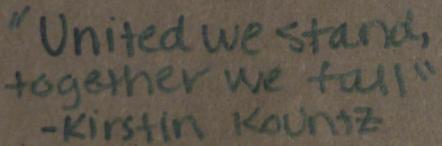 "United we stand,
together we fall"
-Kirstin Kountz